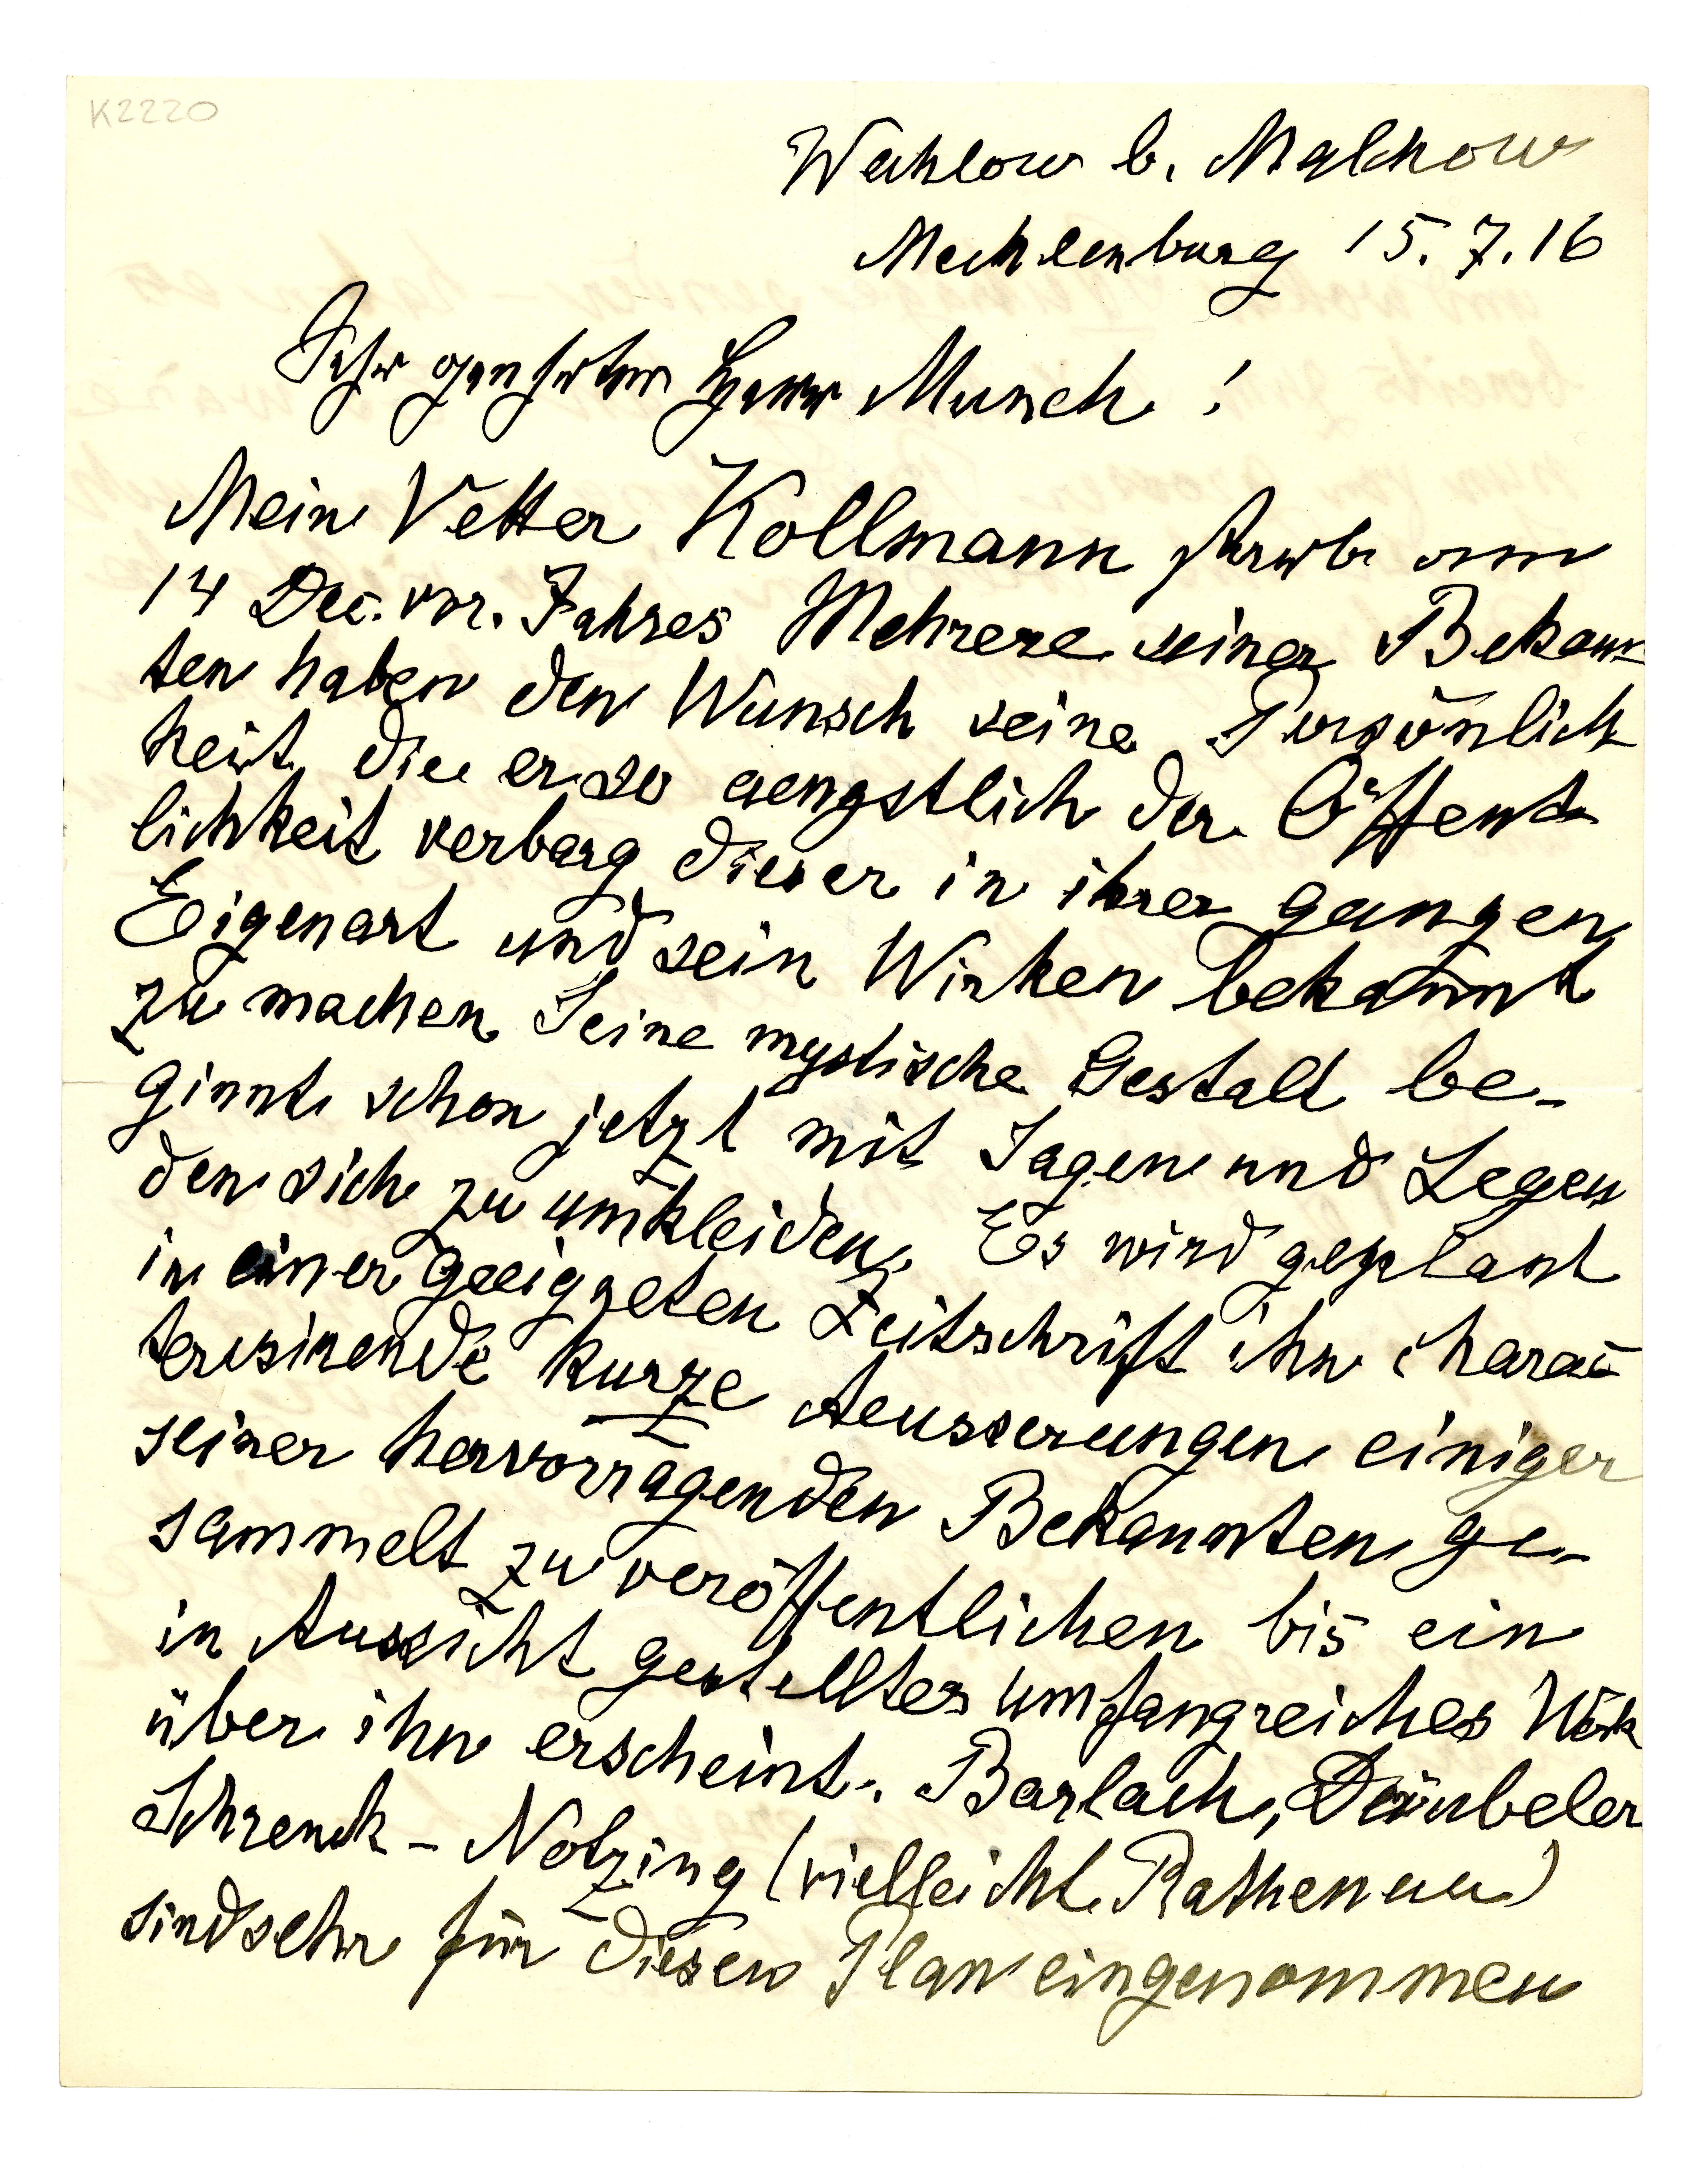 K2220
Wahlow b. Malchow
Mecklenburg 15.7.16
Sehr geehrter Herr Munch!
Mein Vetter Kollmann starb am
14 Dec. vor. Jahres Mehrere seiner Bekann
ten haben den Wunsch seine Persönlich
keit, die er so aengstlich der Öffent
lichkeit verbarg dieser in ihrer ganzen
Eigenart und sein Wirken bekannt
zu machen Seine mystische Gestalt be-
ginnt schon jetzt mit Sagen und Legen
den sich zu umkleiden. Es wird geplant
in einer geeigneten Zeitschrift ihn charac
terisirende kurze Aeusserungen einiger
seiner hervorragenden Bekannten ge-
sammelt zu veröffentlichen bis ein
in Aussicht gestelltes umfangreiches Werk
über ihn erscheint. Barlach, Däubeler
Schrenck-Notzing (vielleicht Rathenau)
sind sehr für diesen Plan eingenommen